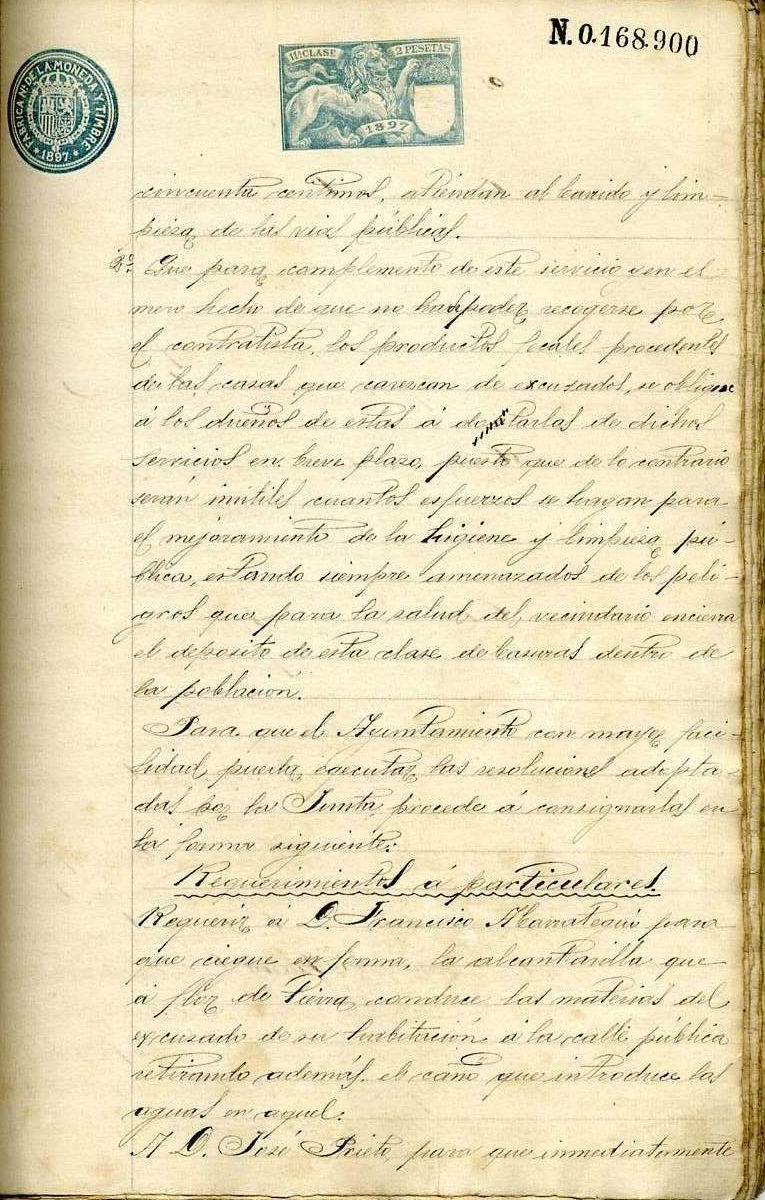 N.0.168.900
11ª CLASE 2 PESETAS
1897
FABRICA Nl. DE LA MONEDA Y TIMBRE
* 1897 *
cincuenta centimos, atiendan al barido y lim-
pieza de las vias públicas.
2º Que para complemento de este servicio y en el
mero hecho de que no han poder recogerse por
el contratista, los productos fecales procedentes
de las casas que carescan de excusados, se obligue
á los dueños de estas á dotarlas de dichos
servicios en breve plazo, puesto que de lo contrario
serán inutiles cuantos esfuerzos se hagan para
el mejoramiento de la higiene y limpieza pú-
blica, estando siempre amenazados de los peli-
gros que para la salud del vecindario encierra
el deposito de esta clase de basuras dentro de
la poblacion.
Para que el Ayuntamiento con mayor faci-
lidad pueda egecutar las resoluciones adopta-
das por la Junta, procede á consignarlas en
la forma siguiente:
Requerimientos á particulares.
Requerir á D. Francisco para
que ciegue en forma, la alcantarilla que
á flor de tierra conduce las materias del
excusado de su habitación á la calle pública
retirando además el caño que introduce las
aguas en aquel.
A D. José Prieto, para que inmediatamente